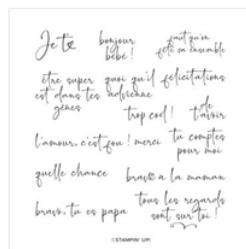 Je t'❤
bonjour
bébé !
faut qu'on
fête ça ensemble
être super
est dans tes
gènes
quoi qu'il
advienne
félicitations
trop cool !
de
t'avoir
l'amour, c'est fou !
merci
tu comptes
pour moi
quelle chance
bravo à la maman
bravo, tu es papa
tous les regards
sont sur toi !
©STAMPIN' UP!